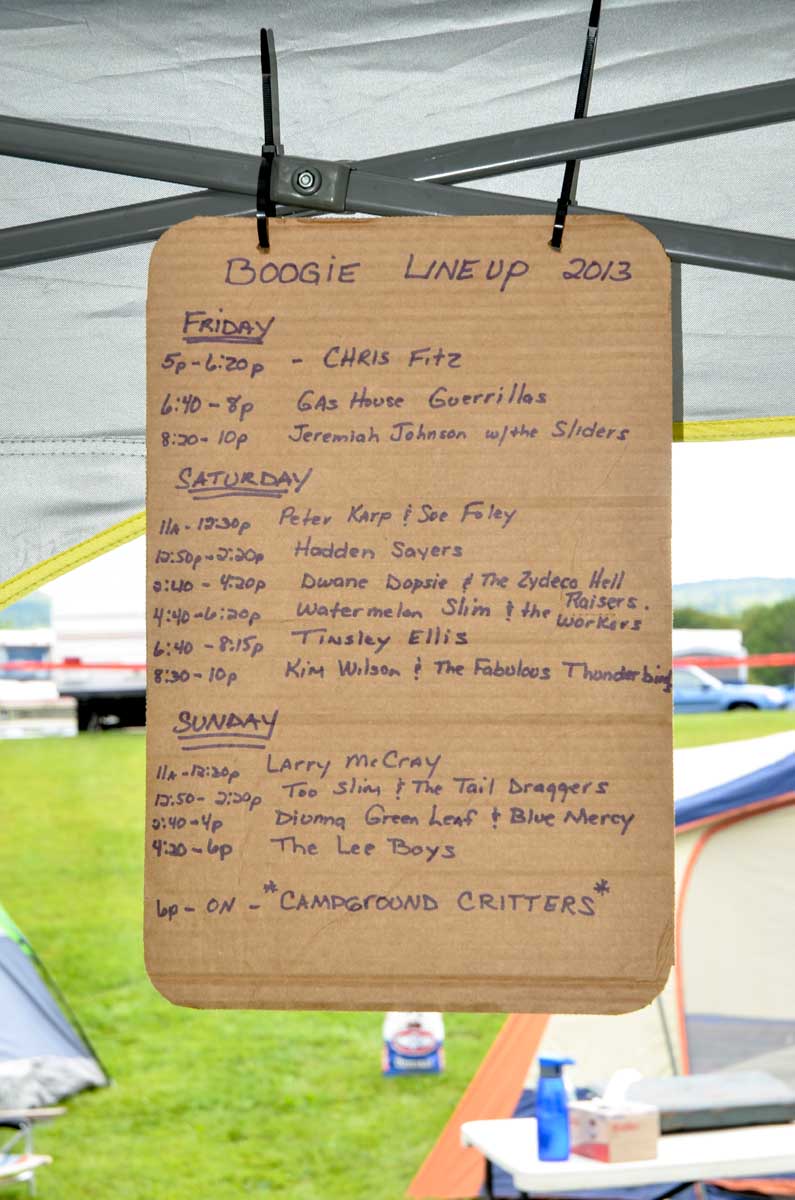 BOOGIE LINEUP 2013
FRIDAY
5p-6:20p - CHRIS Fitz
6:40-8p GAs House Guerrillas
8:20-10p Jeremiah Johnson w/the Sliders
SATURDAY
11A-12:30p Peter Karp & Sue Foley
12:50p-2:20p Hadden Sayers
2:40-4:20p Dwane Dopsie & The Zydeco Hell Raisers.
4:40-6:20p Watermelon Slim & the Workers
6:40-8:15p TiNSLEY ELLiS
8:30-10p Kim Wilson & The Fabulous Thunderbirds
SUNDAY
11A-12:30p LARRY McCRAY
12:50-2:20p Too Slim & The Tail Draggers
2:40-4p Diunna GreenLeaf & Blue Mercy
4:20-6p The Lee Boys
6p-ON-*CAMPGROUND CRITTERS*